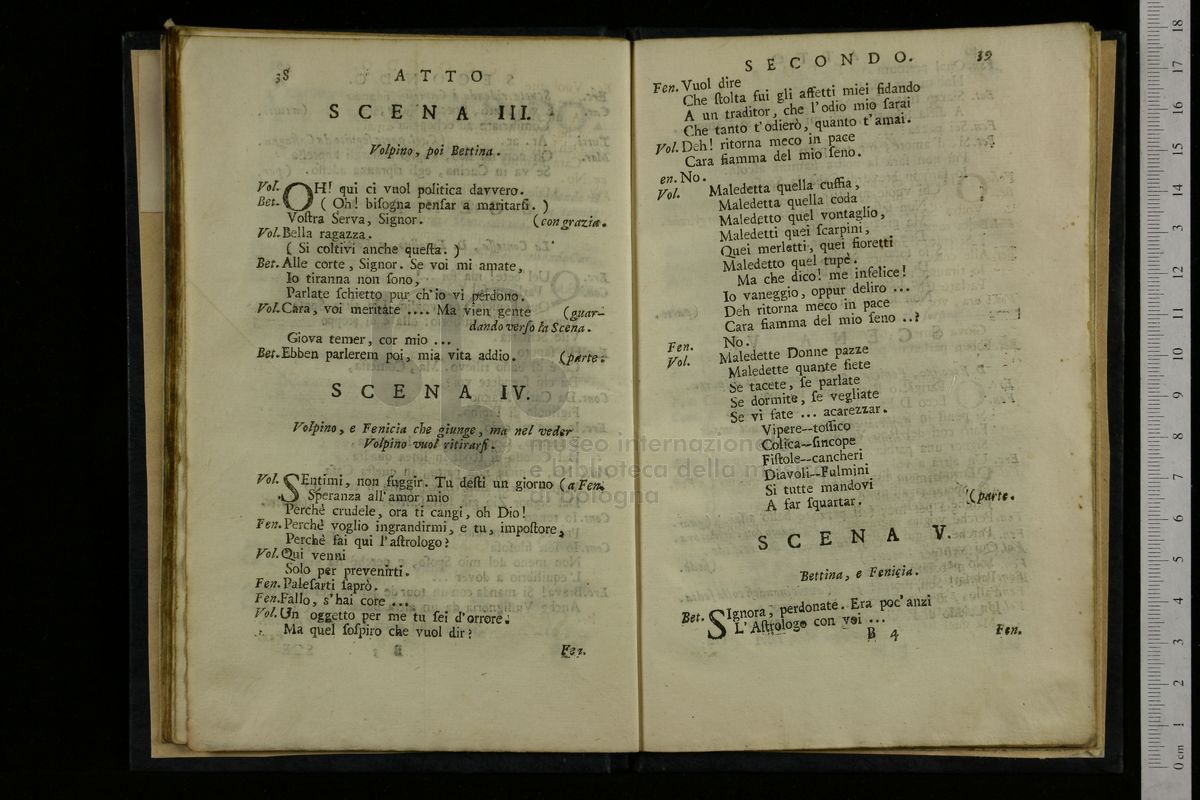 38 ATTO
SCENA III.
Volpino, poi Bettina.
Vol. OH! qui ci vuol politica davvero.
Bet. ( Oh! bisogna pensar a maritarsi. )
Vostra Serva, Signor. (con grazia.
Vol. Bella ragazza.
( Si coltivi anche questa. )
Bet. Alle corte, Signor. Se voi mi amate,
Io tiranna non sono,
Parlate schietto pur ch'io vi perdono.
Vol. Cara, voi meritate .... Ma vien gente (guar-
dando verso la Scena.
Giova temer, cor mio ...
Bet. Ebben parlerem poi, mia vita addio. (parte.
SCENA IV.
Volpino, e Fenicia che giunge, ma nel veder
Volpino vuol ritirarsi.
Vol. SEntimi, non fuggir. Tu desti un giorno (a Fen.
Speranza all'amor mio
Perchè crudele, ora ti cangi, oh Dio!
Fen. Perchè voglio ingrandirmi, e tu, impostore,
Perchè fai qui l'astrologo?
Vol. Qui venni
Solo per prevenirti.
Fen. Palesarti saprò.
Fen. Fallo, s'hai core ...
Vol. Un oggetto per me tu sei d'orrore.
Ma quel sospiro che vuol dir?
Fen.
SECONDO. 39
Fen. Vuol dire
Che stolta fui gli affetti miei fidando
A un traditor, che l'odio mio sarai
Che tanto t'odierò, quanto t'amai.
Vol. Deh! ritorna meco in pace
Cara fiamma del mio seno.
en. No.
Vol. Maledetta quella cuffia,
Maledetta quella coda
Maledetto quel vontaglio,
Maledetti quei scarpini,
Quei merletti, quei fioretti
Maledetto quel tupè.
Ma che dico! me infelice!
Io vaneggio, oppur deliro ...
Deh ritorna meco in pace
Cara fiamma del mio seno ..?
Fen. No.
Vol. Maledette Donne pazze
Maledette quante siete
Se tacete, se parlate
Se dormite, se vegliate
Se vi fate ... acarezzar.
Vipere--tossico
Colica--sincope
Fistole--cancheri
Diavoli--Fulmini
Si tutte mandovi
A far squartar. (parte.
SCENA V.
Bettina, e Fenicia.
Bet. SIgnora, perdonate. Era poc'anzi
L'Astrologo con voi ...
B 4 Fen.
museo internazionale
e biblioteca della musica
di bologna